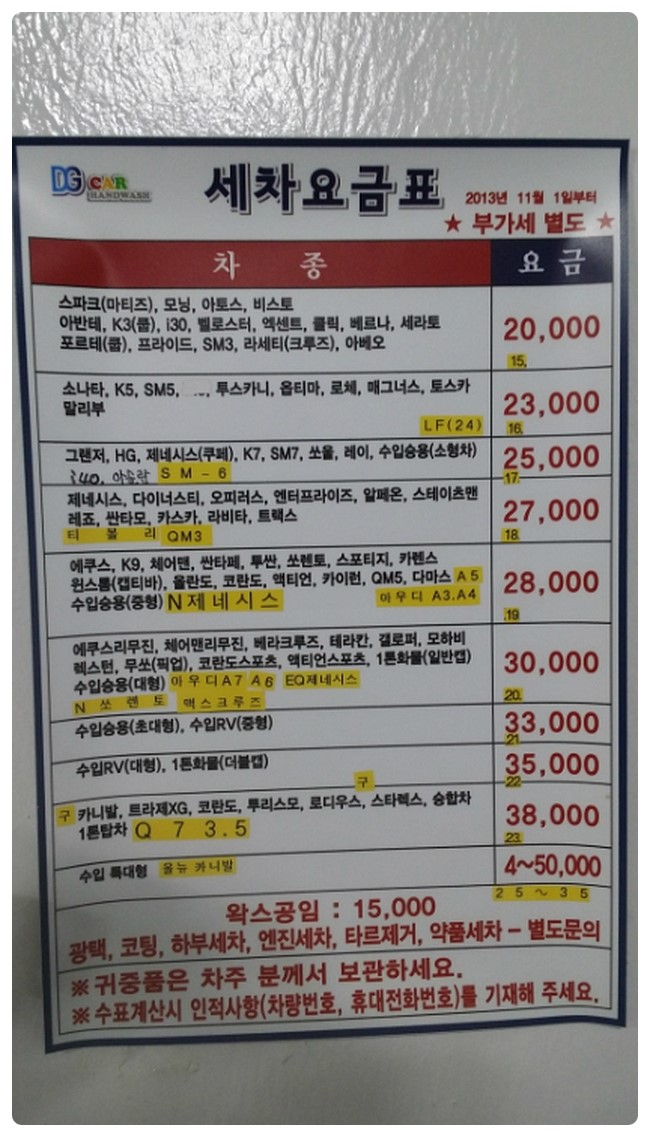 DG CAR HANDWASH
세차요금표
2013년 11월 1일부터
★ 부가세 별도 ★
차 종 요 금
스파크(마티즈), 모닝, 아토스, 비스토
아반테, K3(쿱), i30, 벨로스터, 엑센트, 클릭, 베르나, 세라토
포르테(쿱), 프라이드, SM3, 라세티(크루즈), 아베오
20,000
15,
소나타, K5, SM5, 투스카니, 옵티마, 로체, 매그너스, 토스카
말리부
LF(24)
23,000
16,
그랜저, HG, 제네시스(쿠페), K7, SM7, 쏘울, 레이, 수입승용(소형차)
i40, 아슬란 SM-6
25,000
17
제네시스, 다이너스티, 오피러스, 엔터프라이즈, 알페온, 스테이츠맨
레죠, 싼타모, 카스카, 라비타, 트랙스
티 볼 리 QM3
27,000
18,
에쿠스, K9, 체어맨, 싼타페, 투싼, 쏘렌토, 스포티지, 카렌스
윈스톰(캡티바), 올란도, 코란도, 액티언, 카이런, QM5, 다마스 A5
수입승용(중형) N제네시스 아우디 A3.A4
28,000
19
에쿠스리무진, 체어맨리무진, 베라크루즈, 테라칸, 갤로퍼, 모하비
렉스턴, 무쏘(픽업), 코란도스포츠, 액티언스포츠, 1톤화물(일반캡)
수입승용(대형) 아우디A7 A6 EQ제네시스
N 쏘 렌 토 맥스크루즈
30,000
20,
수입승용(초대형), 수입RV(중형)
33,000
21
수입RV(대형), 1톤화물(더블캡)
35,000
22
구
구 카니발, 트라제XG, 코란도, 투리스모, 로디우스, 스타렉스, 승합차
1톤탑차 Q 7 3.5
38,000
23,
수입 특대형 올뉴 카니발
4~50,000
25~35
왁스공임 : 15,000
광택, 코팅, 하부세차, 엔진세차, 타르제거, 약품세차 - 별도문의
※ 귀중품은 차주 분께서 보관하세요.
※ 수표계산시 인적사항(차량번호, 휴대전화번호)를 기재해 주세요.